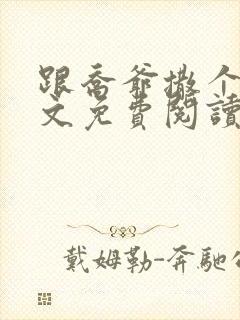 跟喬爺撒个
文免費閱讀
戴姆勒-奔馳公